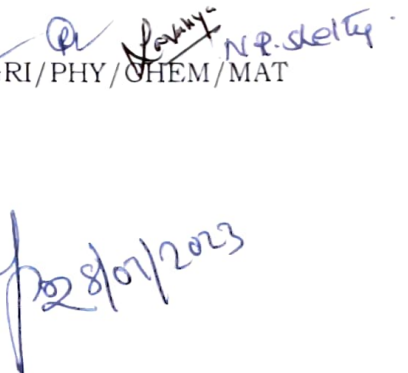 Lavanya N.R. Shetty
RI/PHY/CHEM/MAT
28/07/2023